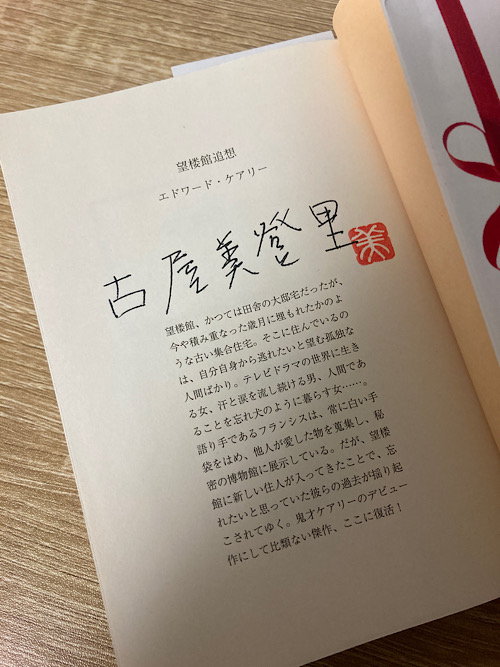 望楼館追想
エドワード・ケアリー
古屋美登里
美
望楼館、かつては田舎の大邸宅だったが、
今や積み重なった歳月に埋もれたかのよ
うな古い集合住宅。そこに住んでいるの
は、自分自身から逃れたいと望む孤独な
人間ばかり。テレビドラマの世界に生き
る女、汗と涙を流し続ける男、人間であ
ることを忘れ犬のように暮らす女……。
語り手であるフランシスは、常に白い手
袋をはめ、他人が愛した物を蒐集し、秘
密の博物館に展示している。だが、望楼
館に新しい住人が入ってきたことで、忘
れたいと思っていた彼らの過去が揺り起
こされてゆく。鬼才ケアリーのデビュー
作にして比類ない傑作、ここに復活！